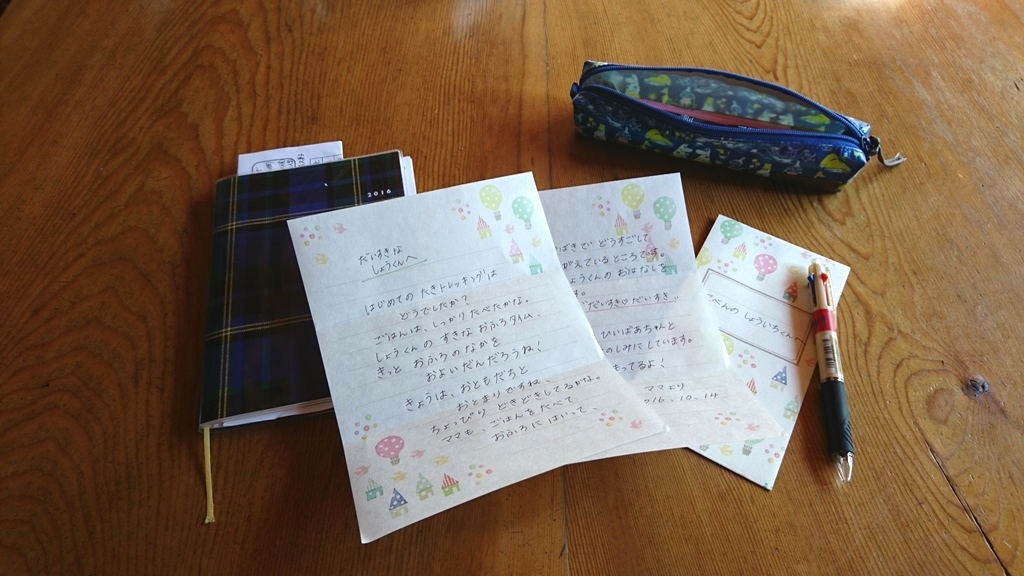 2016
だいすきな
しょうくんへ
はじめての たきトレッキングは
どうでしたか?
ごはんは、しっかり たべたかな。
しょうくんの すきな おふろタイム、
きっと おふろのなかを
およいだんだろうね!
きょうは、おともだちと
おとまりですね。
ちょっぴり どきどきしてるかな。
ママも、ごはんをたべて
おふろにはいって、
どうすごして
がえているところです。
しょうくんの おはなしを
す。
だいすき♡だいすき…
ひいばあちゃんと
のしみにしています。
ってるよ!
ママより
2016.10.14
しょういちくんへ